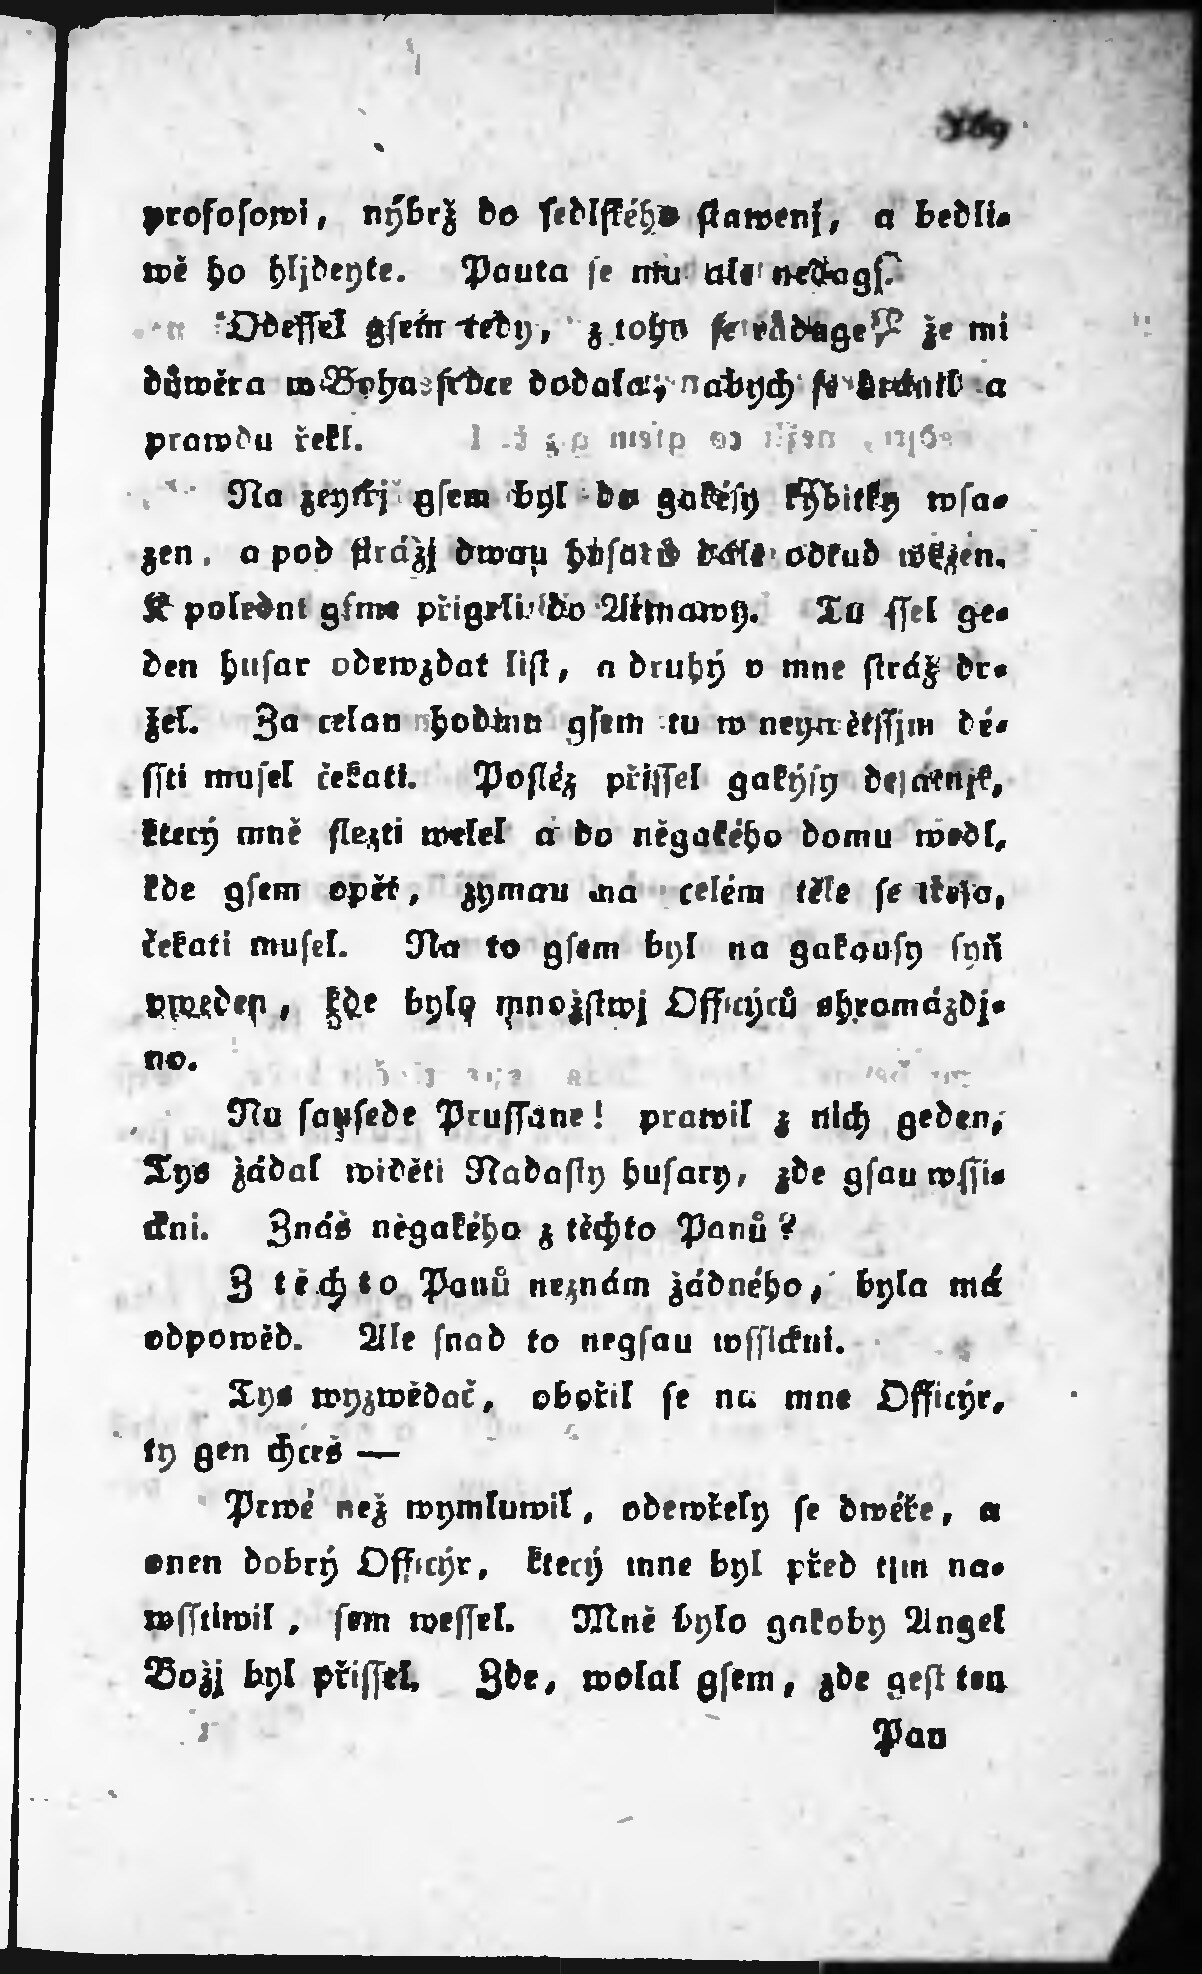 169
profosowi, nýbrž do sedlského stawenj, a bedli-
wě ho hljdeyte. Pauta se mu ale nedags.
Odessel gsem tedy, z toho se raduge, že mi
důwěra w Boha srdce dodala, abych se a
prawdu řekl.
Na zeytřj gsem byl do gakésy kybitky wsa-
zen, a pod strážj dwau husarů dále odtud wezen.
K polednt gsme přigeli do Altmawy. Tu ssel ge-
den husar odewzdat list, a druhý v mne stráž dr-
žel. Za celau hodinu gsem tu w neywětssjm dé-
ssti musel čekati. Posléz přissel gakýsy desátnjk,
který mně slezti welel a do něgakého domu wedl,
kde gsem opět, zymau na celém těle se třesa,
čekati musel. Na to gsem byl na gakausy syň
vweden, kde bylo množstwj Officýrů shromáždj-
no.
Nu sausede Prussane! prawil z nich geden,
Tys žádal widěti Nadasty husary, zde gsau wssi-
ckni. Znáš něgakého z těchto Panů?
Z těchto Panů neznám žádného, byla má
odpowěd. Ale snad to negsau wssickni.
Tys wyzwědač, obořil se na mne Officýr,
ty gen chceš —
Prwé než wymluwil, odewřely se dwéře, a
onen dobrý Officýr, který mne byl před tjm na-
wsstiwil, sem wessel. Mně bylo gakoby Angel
Božj byl přissel. Zde, wolal gsem, zde gest ten
Pan